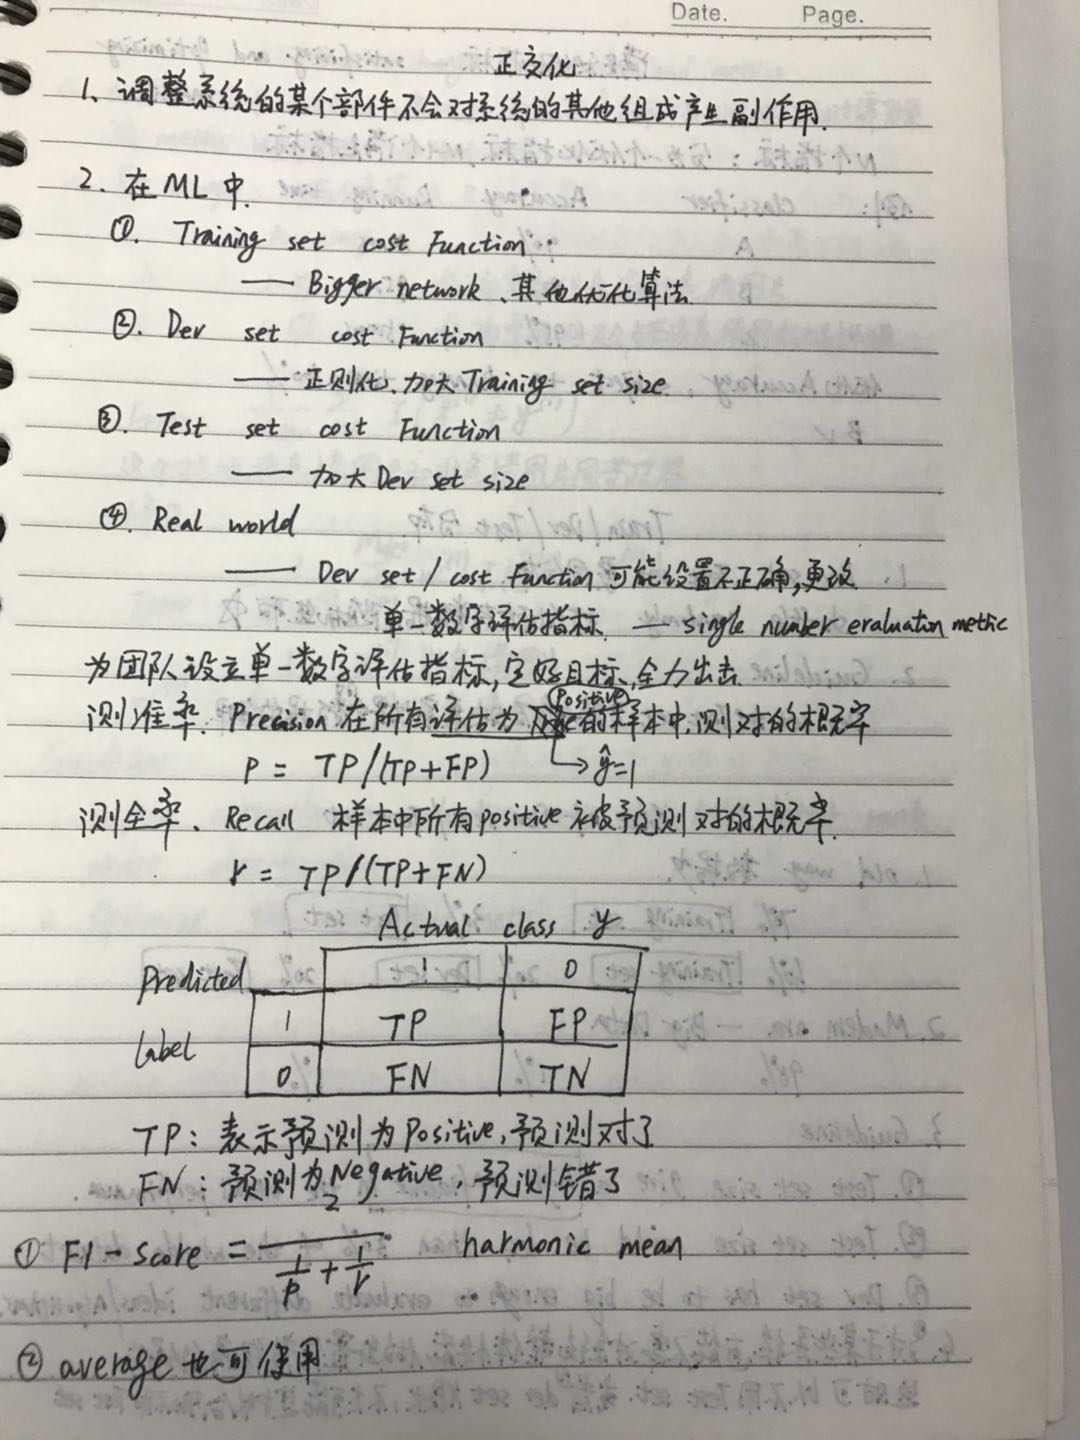 Date. Page.
正交化
1、调整系统的某个部件不会对系统的其他组成产生副作用.
2. 在ML中.
①. Training set cost Function
—— Bigger network、其他优化算法
②. Dev set cost Function
—— 正则化、加大Training set size.
③. Test set cost Function
—— 加大Dev set size
④. Real world
—— Dev set / cost Function 可能设置不正确,更改
单一数字评估指标. — single number evaluation metric
为团队设立单一数字评估指标,定好目标,全力出击.
测准率. Precision 在所有评估为 Positive 的样本中,测对的概率
P = TP/(TP+FP) → ŷ=1
测全率、Recall 样本中所有positive 被预测对的概率.
r = TP/(TP+FN)
Actual class y
Predicted 1 0
1 TP FP
label
0 FN TN
TP: 表示预测为Positive,预测对了
FN: 预测为Negative,预测错了
① F1-score = 2 / (1/P + 1/r) harmonic mean
② average 也可使用